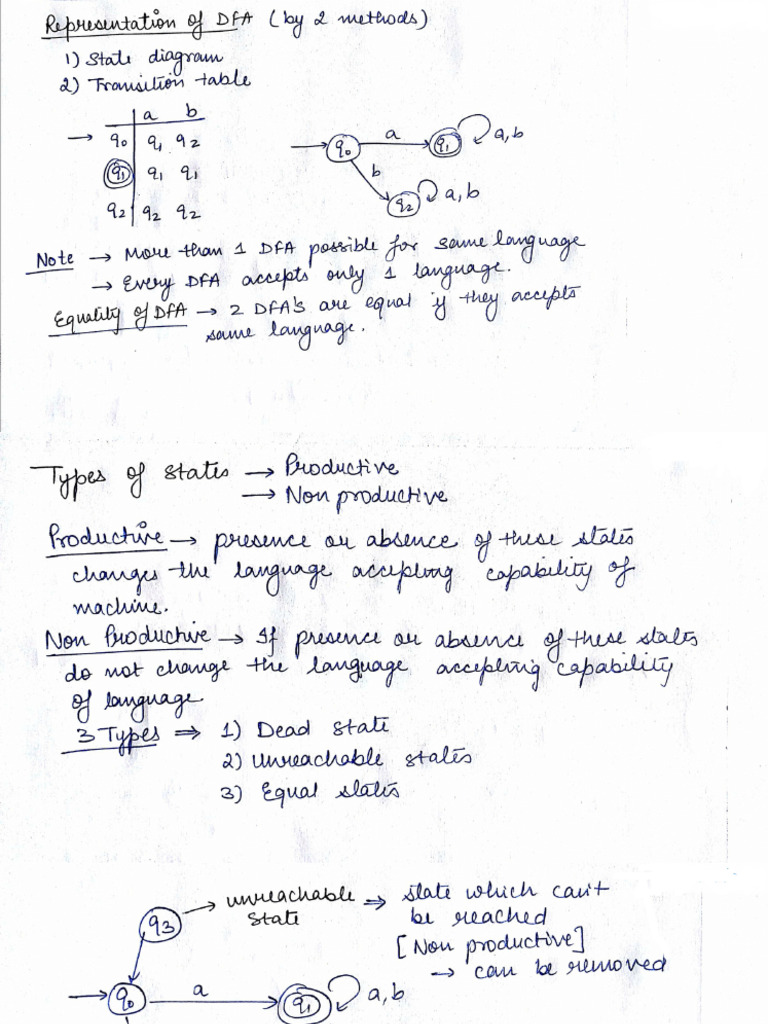 Representation of DFA (by 2 methods)
1) State diagram
2) Transition table
a b
→ q0 q1 q2
q1 q1 q1
q2 q2 q2
q0 a q1 a,b
b
q2 a,b
Note → More than 1 DFA possible for same language
→ Every DFA accepts only 1 language.
Equality of DFA → 2 DFA's are equal if they accepts
same language.
Types of states → Productive
→ Non productive
Productive → presence or absence of these states
changes the language accepting capability of
machine.
Non Productive → If presence or absence of these states
do not change the language accepting capability
of language
3 Types ⇒ 1) Dead state
2) Unreachable states
3) Equal states
q3 → unreachable state ⇒ state which can't
be reached
[Non productive]
→ can be removed
→ q0 a q1 a,b